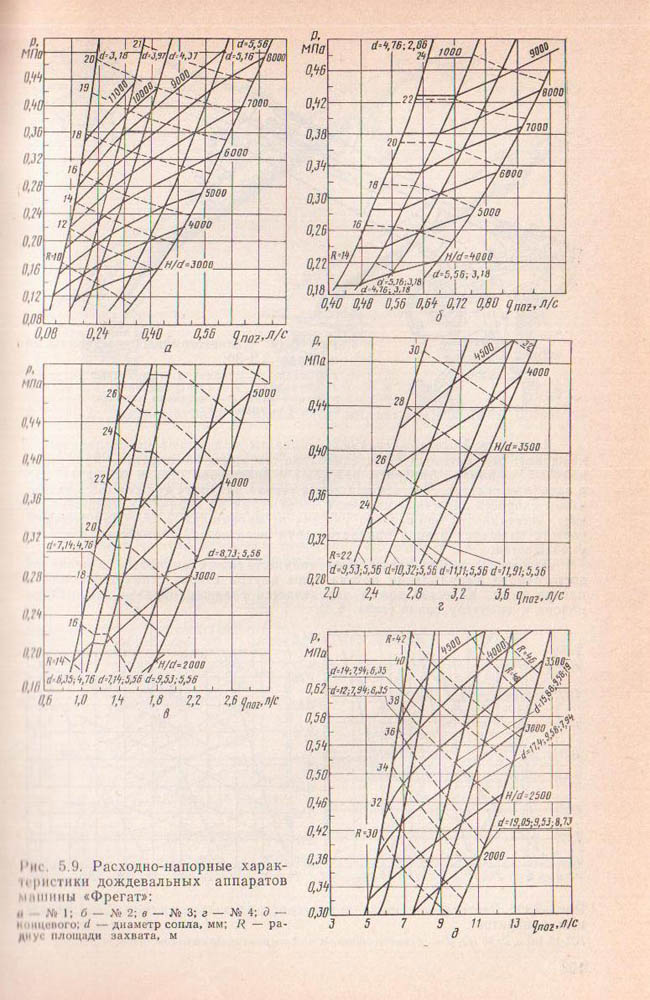 p,
МПа
0,44
0,40
0,36
0,32
0,28
0,24
0,20
0,16
0,12
0,08
0,08
0,24
0,40
0,56
qпог, л/с
21
20
19
18
16
14
12
R=10
d=3,18
d=3,97
d=4,37
d=5,56
d=5,16
11000
10000
9000
8000
7000
6000
5000
4000
H/d=3000
а
p,
МПа
0,46
0,42
0,38
0,34
0,30
0,26
0,22
0,18
0,40
0,48
0,56
0,64
0,72
0,80
qпог, л/с
d=4,76; 2,86
24
1000
22
20
18
16
R=14
9000
8000
7000
6000
5000
H/d=4000
d=5,56; 3,18
d=5,16; 3,18
d=4,76; 3,18
б
p,
МПа
0,44
0,40
0,36
0,32
0,28
0,24
0,20
0,16
0,6
1,0
1,4
1,8
2,2
2,6
qпог, л/с
26
24
22
20
d=7,14; 4,76
18
16
R=14
5000
4000
d=8,73; 5,56
3000
H/d=2000
d=6,35; 4,76
d=7,14; 5,56
d=9,53; 5,56
в
p,
МПа
0,44
0,40
0,36
0,32
0,28
2,0
2,4
2,8
3,2
3,6
qпог, л/с
30
28
26
24
R=22
4500
32
4000
H/d=3500
d=9,53; 5,56
d=10,32; 5,56
d=11,11; 5,56
d=11,91; 5,56
г
p,
МПа
0,62
0,58
0,54
0,50
0,46
0,42
0,38
0,34
0,30
3
5
7
9
11
13
qпог, л/с
R=42
40
d=14; 7,94; 6,35
d=12; 7,94; 6,35
38
36
34
32
R=30
4500
4000
R=46
3500
3000
d=17,4; 9,58; 7,94
H/d=2500
d=19,05; 9,53; 8,73
2000
д
Рис. 5.9. Расходно-напорные харак-
теристики дождевальных аппаратов
машины «Фрегат»:
а — № 1; б — № 2; в — № 3; г — № 4; д —
концевого; d — диаметр сопла, мм; R — ра-
диус площади захвата, м